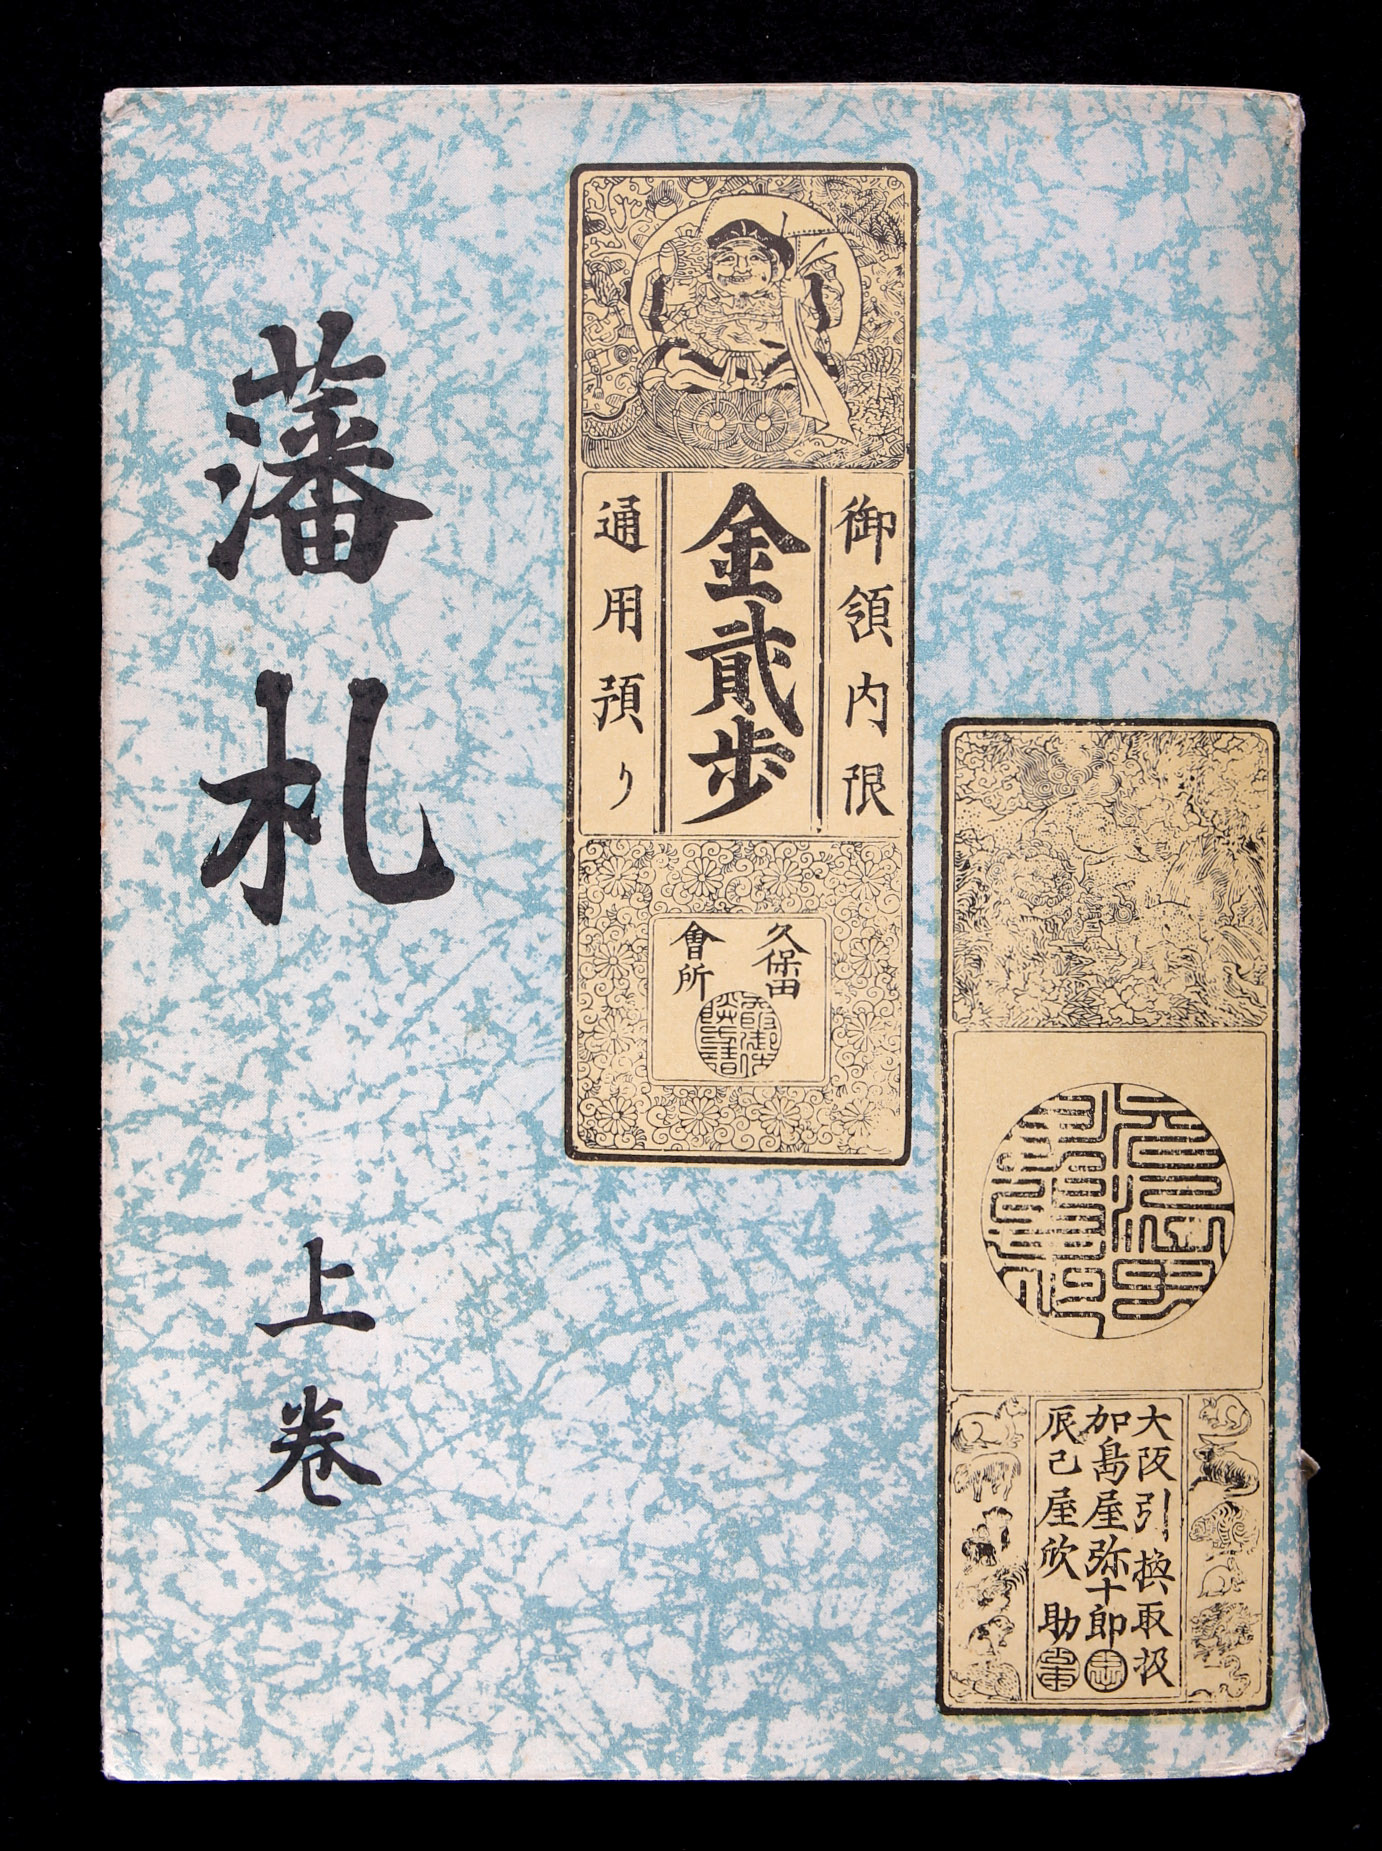 藩札
上巻
御領内限
金貮歩
通用預り
久保田
會所
大阪引換取扱
加島屋弥十郎
辰己屋欣助